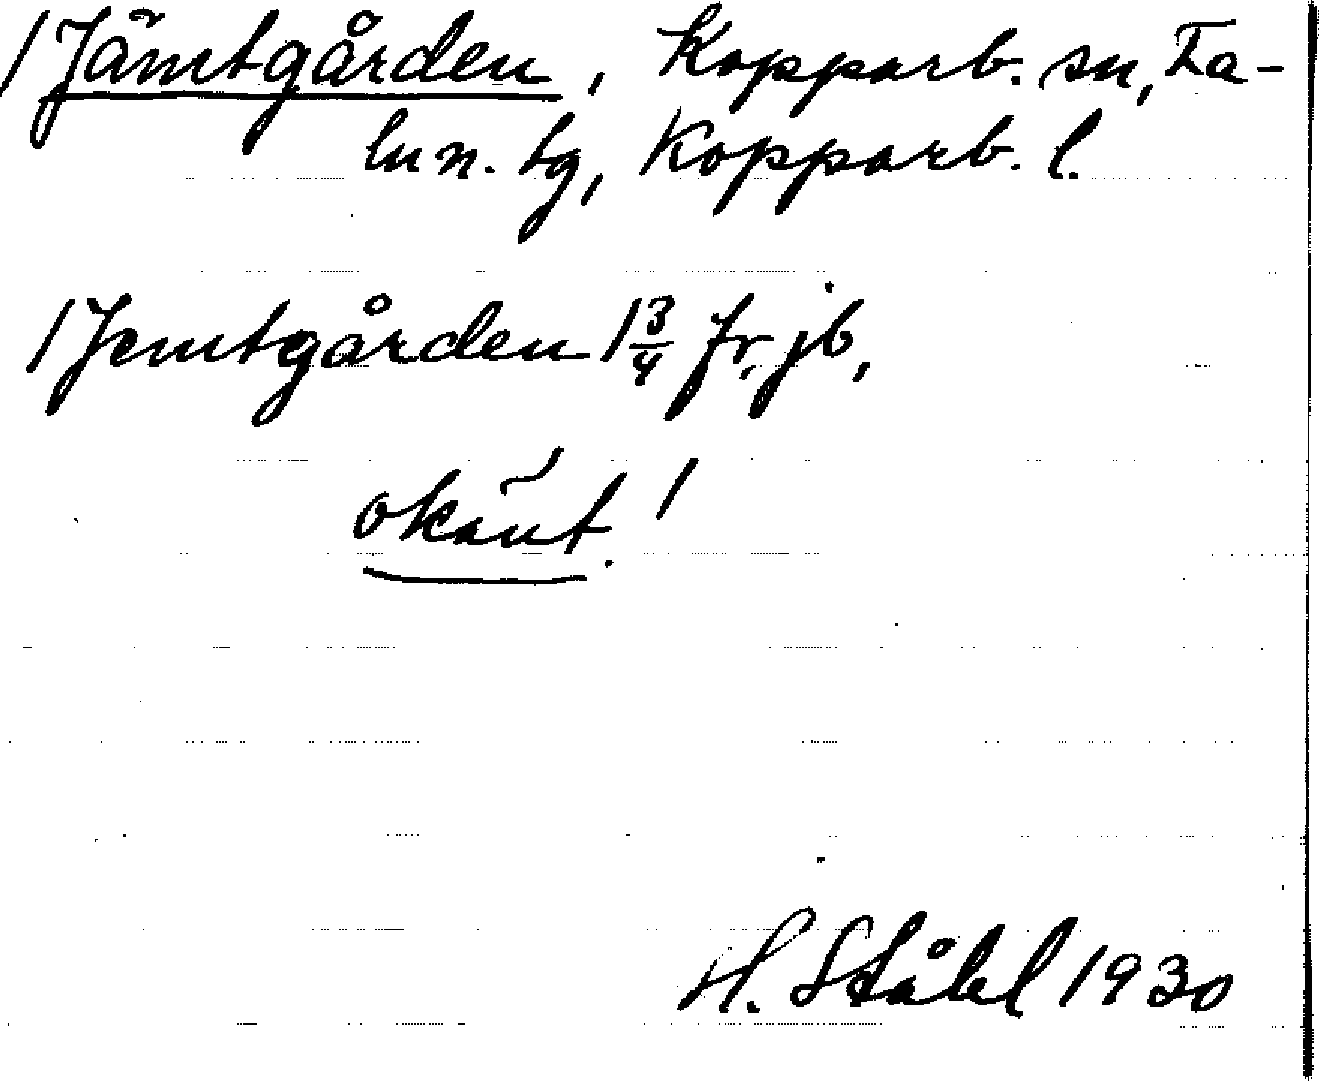 /Jämtgården, Kopparb. sn, Fa-
lun. tg, Kopparb. l.
/Jemtgården 1 3/4 fr, jb,
okänt. /
H. Ståhl 1930